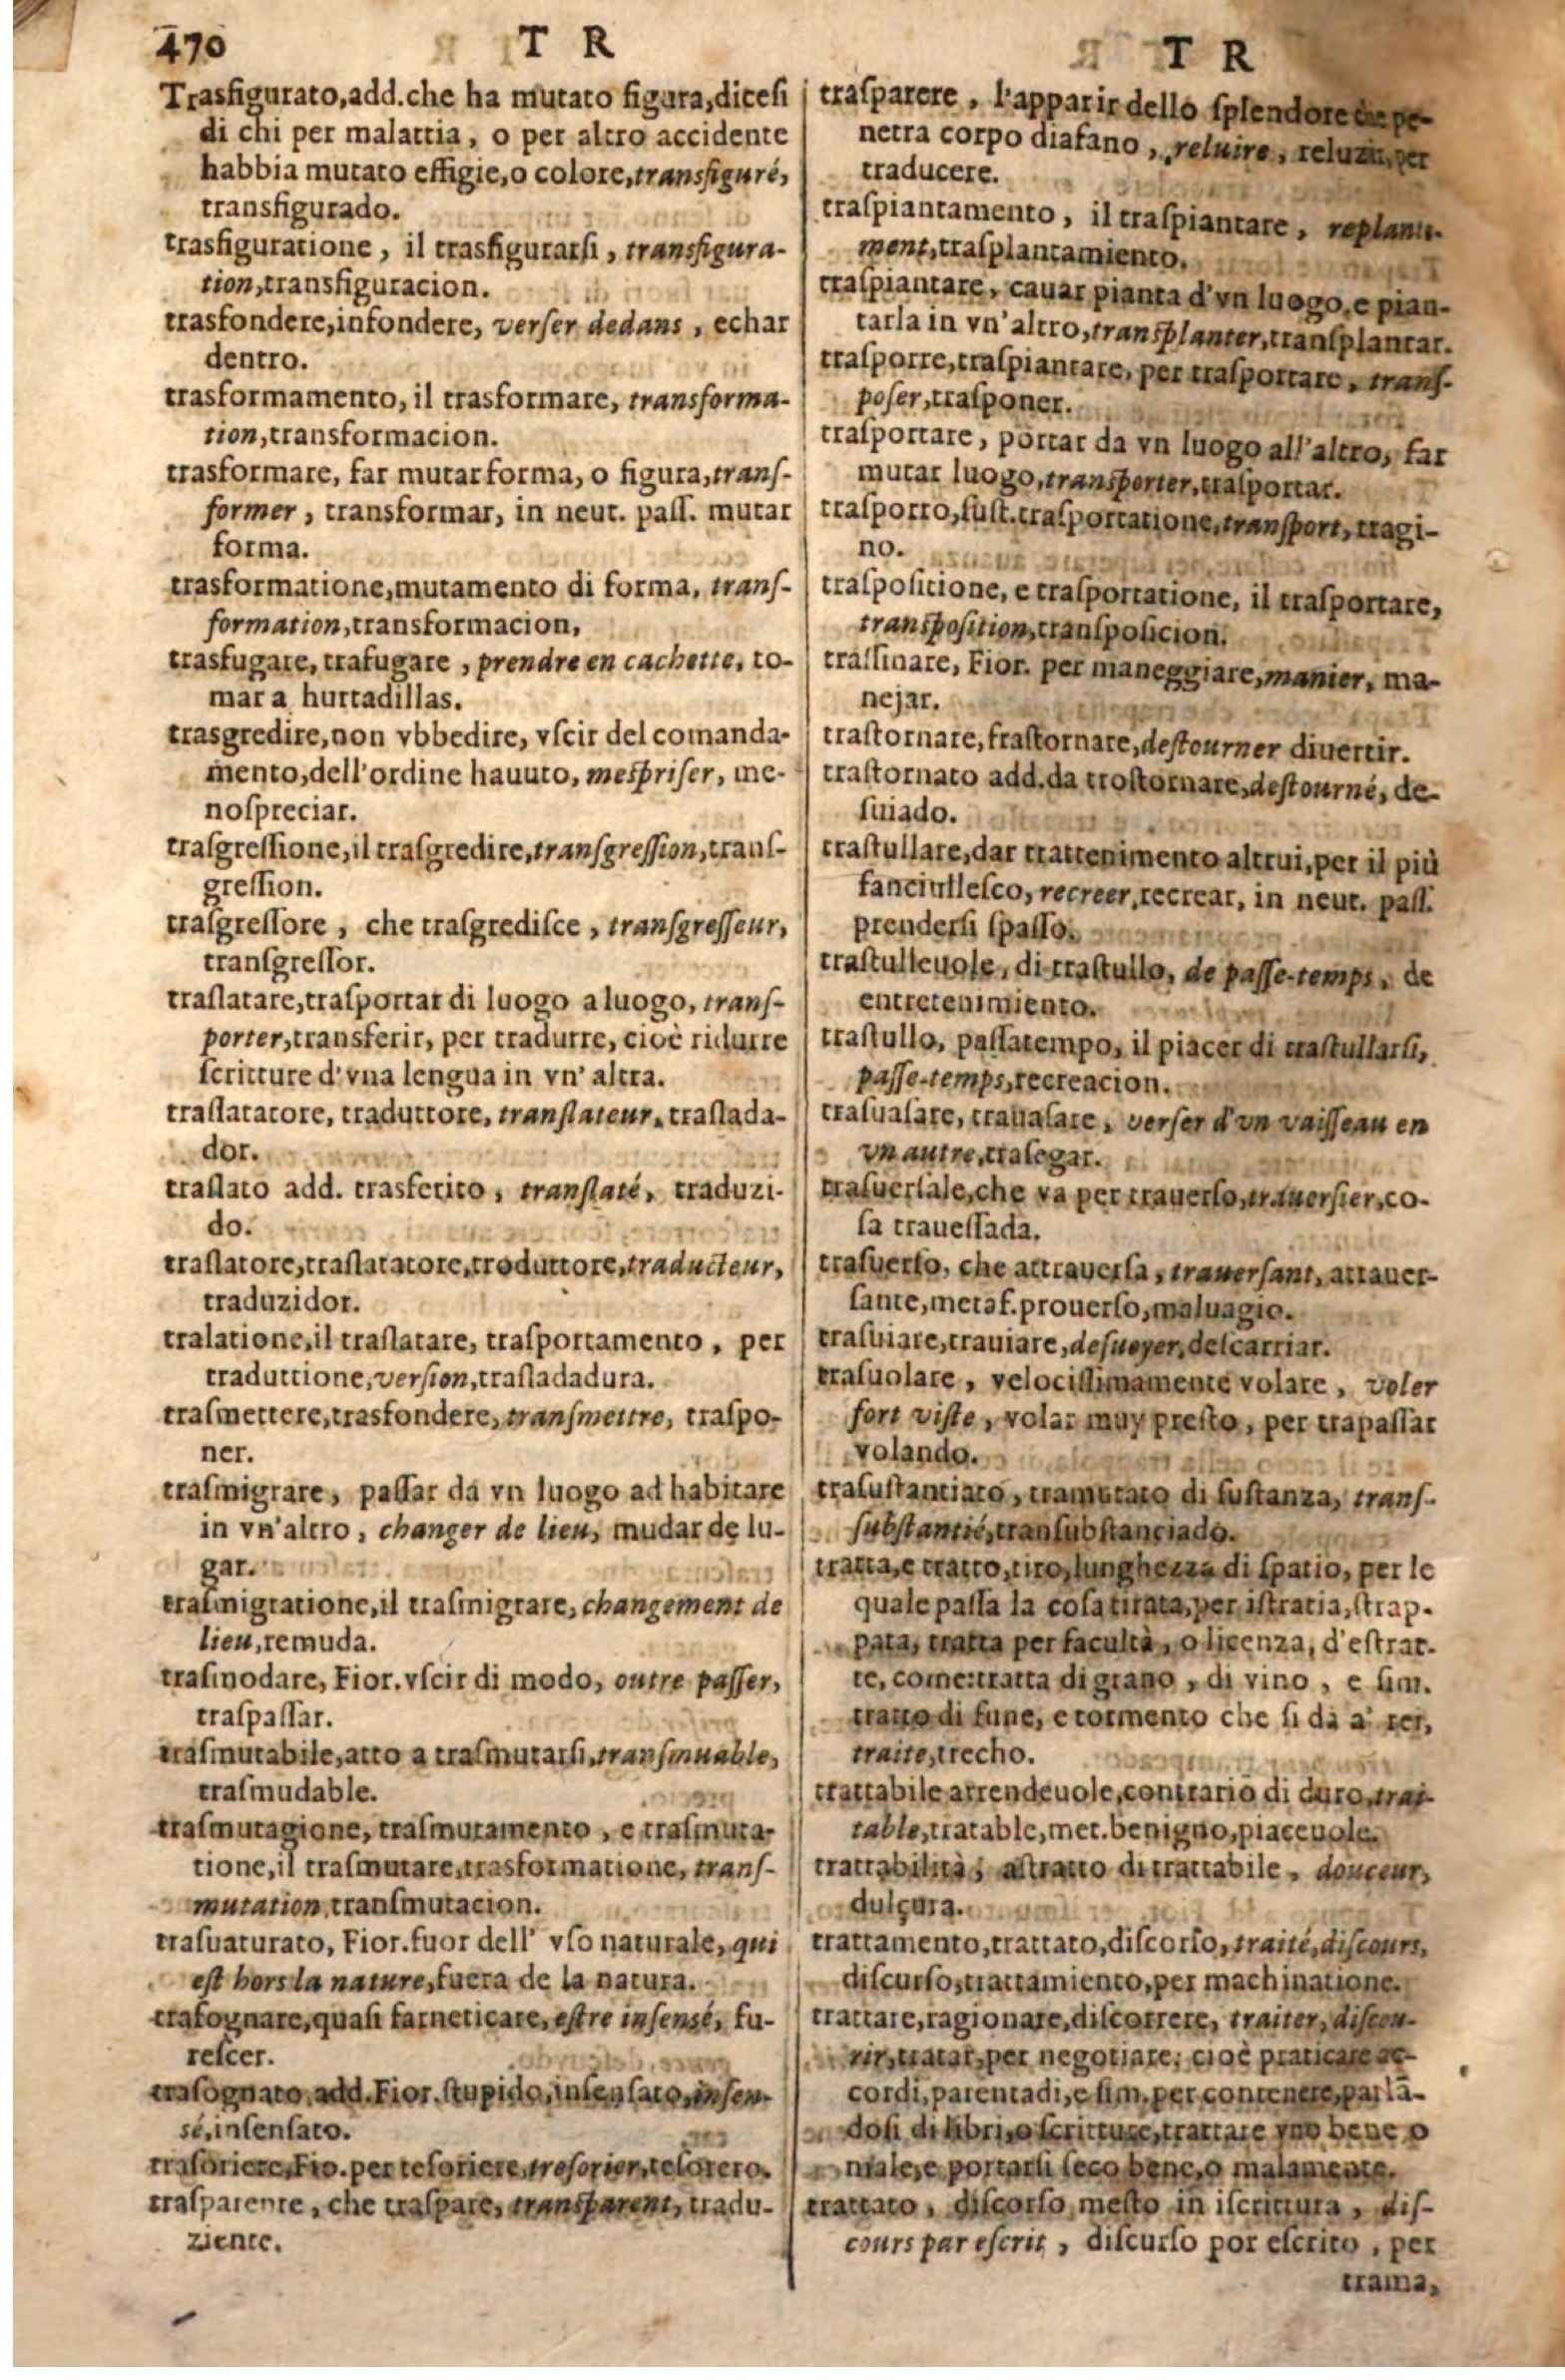 470
T R
Trasfigurato,add.che ha mutato figura,dicesi
di chi per malattia, o per altro accidente
habbia mutato effigie,o colore,transfiguré,
transfigurado.
trasfiguratione, il trasfigurarsi, transfigura-
tion,transfiguracion.
trasfondere,infondere, verſer dedans, echar
dentro.
trasformamento, il trasformare, transforma-
tion,transformacion.
trasformare, far mutar forma, o figura,tranſ-
former, transformar, in neut. paſſ. mutar
forma.
trasformatione,mutamento di forma, tranſ-
formation,transformacion,
trasfugare, trafugare, prendre en cachette, to-
mar a hurtadillas.
trasgredire,non vbbedire, vſcir del comanda-
mento,dell'ordine hauuto, mespriſer, me-
noſpreciar.
traſgreſſione,il traſgredire,tranſgreſſion,tranſ-
greſſion.
traſgreſſore, che traſgrediſce, tranſgreſſeur,
tranſgreſſor.
traſlatare,traſportar di luogo a luogo, tranſ-
porter,transferir, per tradurre, cioè ridurre
ſcritture d'vna lengua in vn' altra.
traſlatatore, traduttore, tranſlateur, traſlada-
dor.
traſlato add. trasferito, tranſlaté, traduzi-
do.
traſlatore,traſlatatore,troduttore,traducteur,
traduzidor.
tralatione,il traſlatare, traſportamento, per
traduttione,verſion,traſladadura.
traſmettere,trasfondere, tranſmettre, traſpo-
ner.
traſmigrare, paſſar da vn luogo ad habitare
in vn'altro, changer de lieu, mudar de lu-
gar.
traſmigratione,il traſmigrare, changement de
lieu,remuda.
traſmodare, Fior.vſcir di modo, outre paſſer,
traſpaſſar.
traſmutabile,atto a traſmutarſi,tranſmuable,
traſmudable.
traſmutagione, traſmutamento, e traſmuta-
tione,il traſmutare,trasformatione, tranſ-
mutation,tranſmutacion.
traſuaturato, Fior.fuor dell' vſo naturale, qui
eſt hors la nature,fuera de la natura.
traſognare,quaſi farneticare, eſtre inſensé, fu-
reſcer.
traſognato add. Fior. ſtupido,inſenſato,inſen-
sé,inſenſato.
traſoriere,Fio.per teſoriere,treſorier,teſorero.
traſparente, che traſpare, tranſparent, tradu-
ziente.
T R
traſparere, l'apparir dello ſplendore che pe-
netra corpo diafano, reluire, reluzir, per
traducere.
traſpiantamento, il traſpiantare, replante-
ment,traſplantamiento.
traſpiantare, cauar pianta d'vn luogo,e pian-
tarla in vn'altro,tranſplanter,tranſplantar.
traſporre,traſpiantare, per traſportare, tranſ-
poſer,traſponer.
traſportare, portar da vn luogo all'altro, far
mutar luogo,tranſporter,traſportar.
traſporto,ſuſt.traſportatione,tranſport, tragi-
no.
traſpoſitione, e traſportatione, il traſportare,
tranſpoſition,tranſpoſicion.
traſſinare, Fior. per maneggiare,manier, ma-
nejar.
traſtornare,fraſtornare,deſtourner diuertir.
traſtornato add.da troſtornare,deſtourné, de-
ſuiado.
traſtullare,dar trattenimento altrui,per il più
fanciulleſco, recreer,recrear, in neut. paſſ.
prenderſi ſpaſſo.
traſtulleuole, di traſtullo, de paſſe-temps, de
entretenimiento.
traſtullo, paſſatempo, il piacer di traſtullarſi,
paſſe-temps,recreacion.
traſuaſare, trauaſare, verſer d'vn vaiſſeau en
vn autre,traſegar.
traſuerſale,che va per trauerſo,trauerſier,co-
ſa traueſſada.
traſuerſo, che attrauerſa, trauerſant, attauer-
ſante,metaf.prouerſo,maluagio.
traſuiare,trauiare,deſuoyer,deſcarriar.
traſuolare, velociſſimamente volare, voler
fort viſte, volar muy preſto, per trapaſſar
volando.
traſuſtantiato, tramutato di ſuſtanza, tranſ-
ſubſtantié,tranſubſtanciado.
tratta,e tratto,tiro,lunghezza di ſpatio, per le
quale paſſa la coſa tirata,per iſtratia,ſtrap-
pata, tratta per facultà, o licenza, d'eſtrar-
re, come:tratta di grano, di vino, e ſim.
tratto di fune, e tormento che ſi dà a' rer,
traite,trecho.
trattabile arrendeuole,contrario di duro,trai-
table,tratable,met.benigno,piaceuole.
trattabilità, aſtratto di trattabile, douceur,
dulçura.
trattamento,trattato,diſcorſo,traité,diſcours,
diſcurſo,trattamiento,per machinatione.
trattare,ragionare,diſcorrere, traiter, diſcou-
rir,tratar,per negotiare, cioè praticare ac-
cordi,parentadi,e ſim.per contenere,parlã-
doſi di libri,o ſcritture,trattare vno bene o
male,e portarſi ſeco bene,o malamente.
trattato, diſcorſo meſſo in iſcrittura, diſ-
cours par eſcrit, diſcurſo por eſcrito, per
trama,